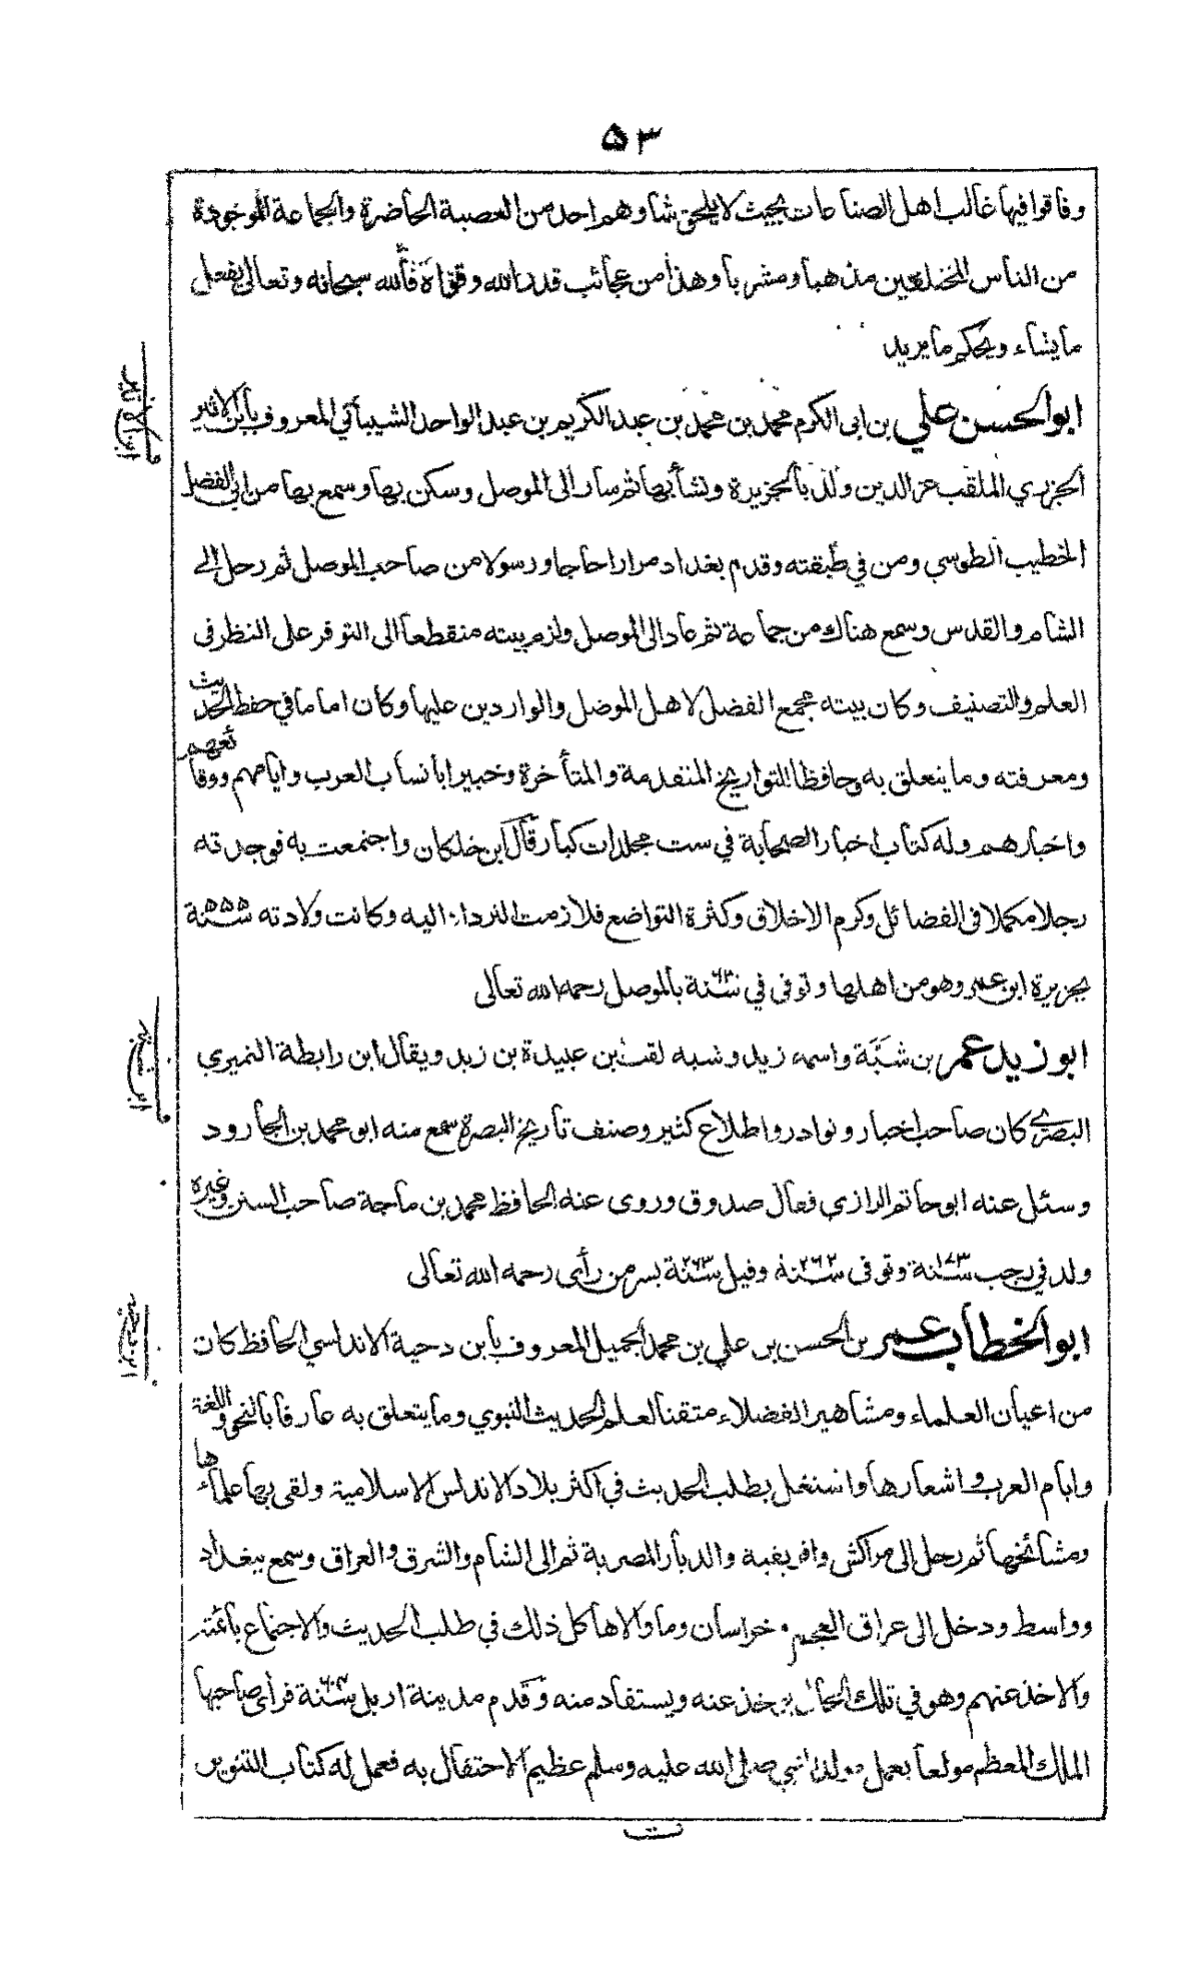 ۵۳
وفاقوا فيها غالب اهل الصناعات بحيث لا يلحق شاوهم احد من العصبة الحاضرة والجماعة الموجودة
من الناس المختلفين مذهبا ومشربا وهذا من عجائب قدرة الله وقوته فالله سبحانه وتعالى يفعل
ما يشاء ويحكم ما يريد
ابو الحسن علي بن ابى الكرم محمد بن محمد بن عبد الكريم بن عبد الواحد الشيباني المعروف بابن الاثير
الجزري الملقب عز الدين ولد بالجزيرة ونشأ بها ثم سار الى الموصل وسكن بها وسمع بها من ابي الفضل
الخطيب الطوسي ومن في طبقته وقدم بغداد مرارا حاجا ورسولا من صاحب الموصل ثم رحل الى
الشام والقدس وسمع هناك من جماعة ثم عاد الى الموصل ولزم بيته منقطعا الى التوفر على النظر فى
العلم والتصنيف وكان بيته مجمع الفضل لاهل الموصل والواردين عليها وكان اماما في حفظ الحديث
ومعرفته وما يتعلق به وحافظا للتواريخ المتقدمة والمتأخرة وخبيرا بانساب العرب وايامهم ووقائعهم
واخبارهم وله كتاب اخبار الصحابة في ست مجلدات كبار قال ابن خلكان واجتمعت به فوجدته
رجلا مكملا فى الفضائل وكرم الاخلاق وكثرة التواضع فلازمت الترداد اليه وكانت ولادته سنة ۵۵۵
بجزيرة ابن عمر وهو من اهلها وتوفى في سنة ۶۳۰ بالموصل رحمه الله تعالى
ابو زيد عمر بن شبَّة واسمه زيد وشبه لقب بن عبيدة بن زيد ويقال ابن رابطة النميري
البصري كان صاحب اخبار ونوادر واطلاع كثير وصنف تاريخ البصرة سمع منه ابو محمد بن الجارود
وسئل عنه ابو حاتم الرازي فقال صدوق وروى عنه الحافظ محمد بن ماجة صاحب السنن وغيره
ولد في رجب سنة ۱۷۳ وتوفى سنة ۲۶۲ وقيل سنة ۲۶۳ بسر من رأى رحمه الله تعالى
ابو الخطاب عمر بن الحسن بن علي بن محمد الجميل المعروف بابن دحية الاندلسي الحافظ كان
من اعيان العلماء ومشاهير الفضلاء متقنا لعلم الحديث النبوي وما يتعلق به عارفا بالنحو واللغة
وايام العرب واشعارها واشتغل بطلب الحديث في اكثر بلاد الاندلس الاسلامية ولقى بها علماءها
ومشائخها ثم رحل الى مراكش وافريقية والديار المصرية ثم الى الشام والشرق والعراق وسمع ببغداد
وواسط ودخل الى عراق العجم وخراسان وما والاها كل ذلك في طلب الحديث والاجتماع بائمته
والاخذ عنهم وهو في تلك الحال يؤخذ عنه ويستفاد منه وقدم مدينة اربل سنة ۶۰۴ فرأى صاحبها
الملك المعظم مولعا بعمل مولد النبي صلى الله عليه وسلم عظيم الاحتفال به فعمل له كتاب التنوير
ابن الاثير
ابن شبه
ابن دحيه